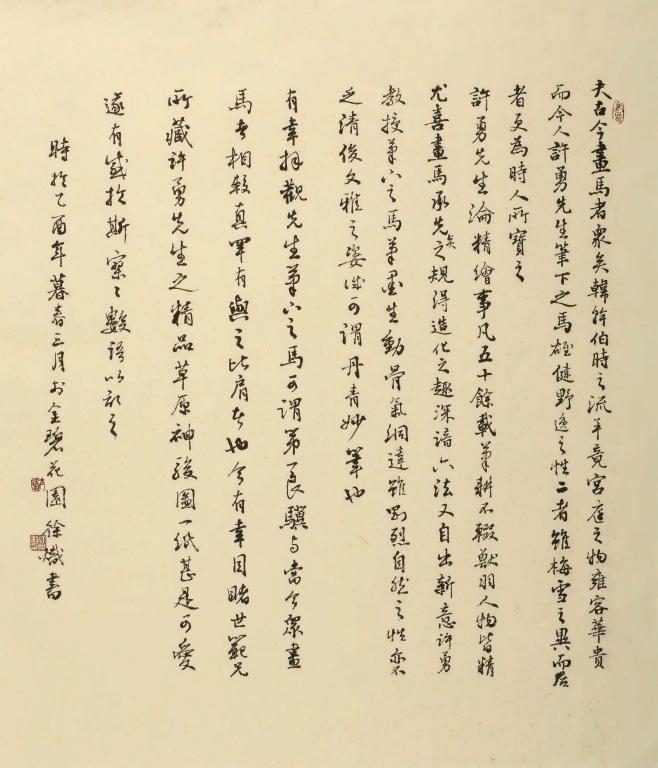 夫古今畫馬者眾矣韓幹伯時之流平竟宮庭之物雍容華貴
而今人許勇先生筆下之馬雄健野逸之性二者雖梅雪之異而后
者更為時人所寶之
許勇先生論精繪事凡五十餘載筆耕不輟獸羽人物皆精
尤喜畫馬承先之規得造化之趣深諳六法又自出新意許勇
矣
教授筆下之馬筆墨生動骨氣洞達雖剛烈自然之性亦不
乏清俊文雅之姿誠可謂丹青妙筆也
有幸拜觀先生筆下之馬可謂第良驥與當今眾畫
馬者相較真罕有與之比肩者也今有幸目睹世範兄
所藏許勇先生之精品草原神駿圖一紙甚是可愛
遂有感於斯寥々數語以記之
時於乙酉年暮春三月於金碧花園徐熾書